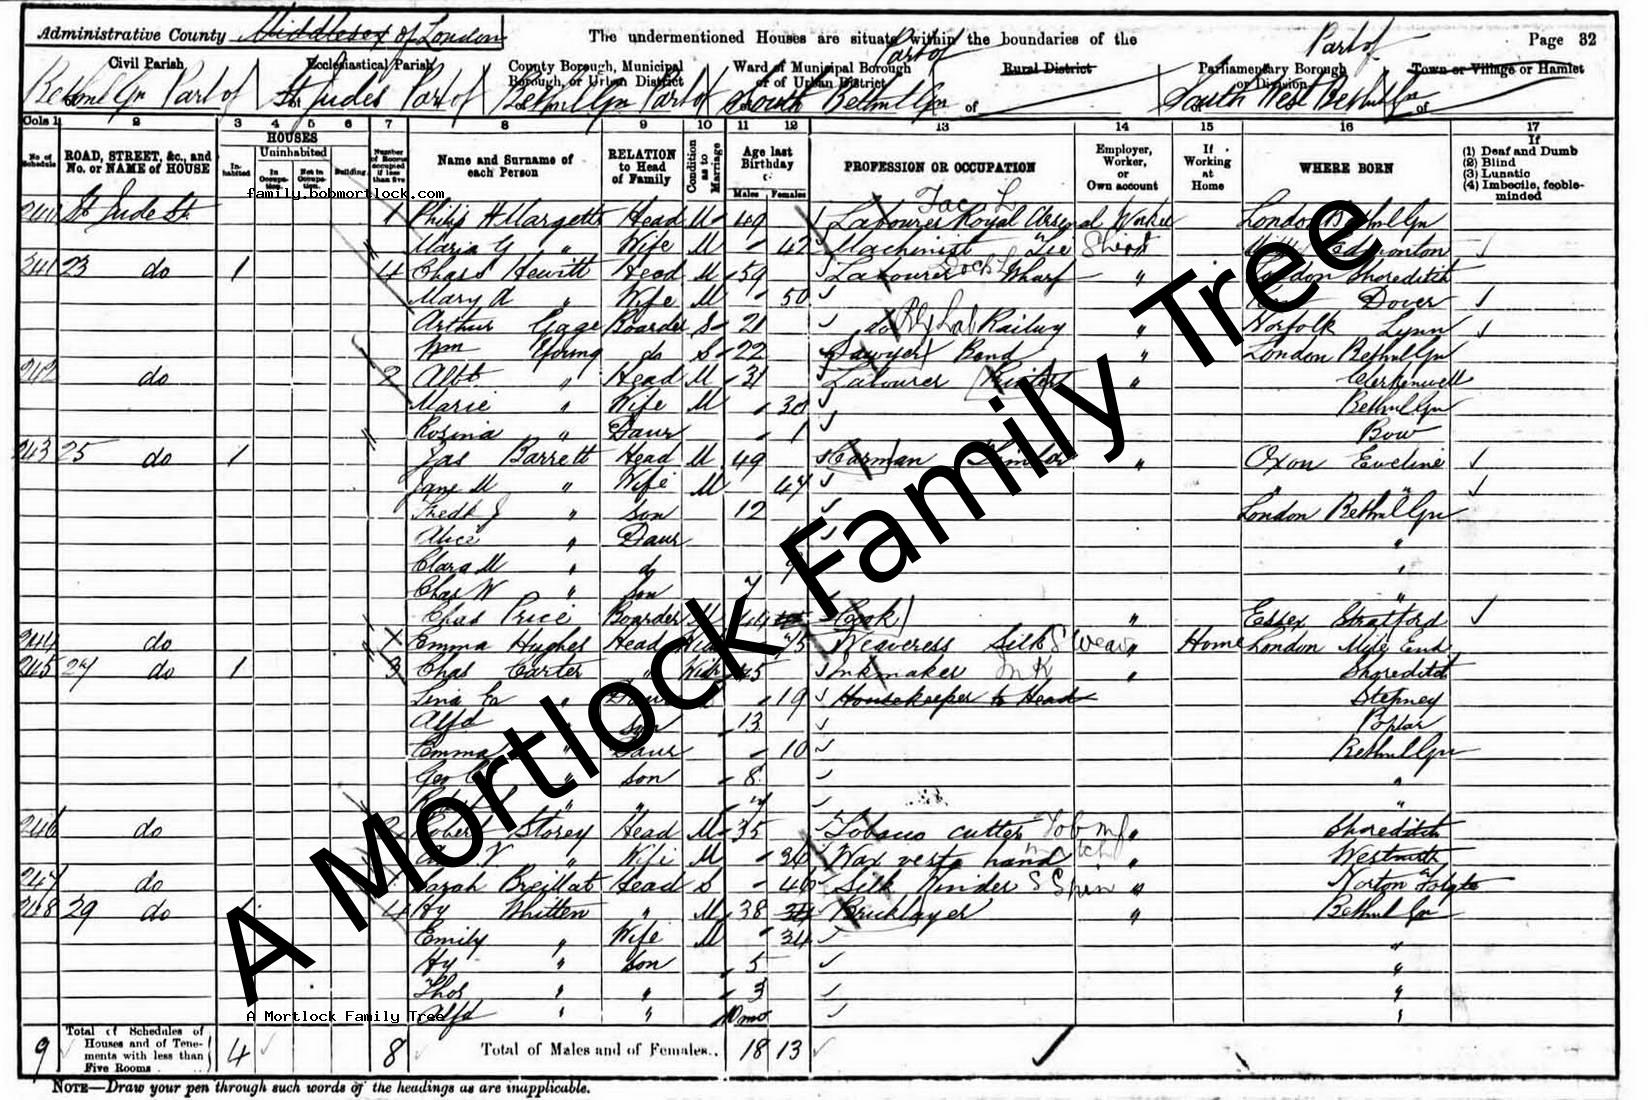 Administrative County Middlesex of London The undermentioned Houses are situate within the boundaries of the Page 32
Part of Part of
Civil Parish Ecclesiastical Parish County Borough, Municipal Borough, or Urban District Ward of Municipal Borough or of Urban District Rural District Parliamentary Borough or Division Town or Village or Hamlet
of Bethnl Gn Part of of St Judes Part of of Bethnl Gn Part of of South Bethnl Gn of of South West Bethnl Gn of
Cols 1 2 3 4 5 6 7 8 9 10 11 12 13 14 15 16 17
No. of Schedule ROAD, STREET, &c., and No. or NAME of HOUSE HOUSES Inhabited Uninhabited In Occupation Not in Occupation Building Number of Rooms occupied if less than five Name and Surname of each Person RELATION to Head of Family Condition as to Marriage Age last Birthday of Males Females PROFESSION OR OCCUPATION Employer, Worker, or Own account If Working at Home WHERE BORN If (1) Deaf and Dumb (2) Blind (3) Lunatic (4) Imbecile, feeble-minded
family.bobmortlock.com
240 St Jude St. 1 Philip H Margetts Head M 49 Labourer Royal Arsenal Worker London Bethnl Gn
Maria G " Wife M 42 Machinist Edmonton
241 23 do 1 4 Chas Hewitt Head M 59 Labourer Wharf " London Shoreditch
Mary A " Wife M 50 Dover
Arthur Gage Boarder S 21 do Railwy " Norfolk Lynn
Wm Young do S 22 Sawyer Band " London Bethnl Gn
242 do 2 Albt " Head M 31 Labourer Printer " Clerkenwell
Marie " Wife M 30 Bethnl Gn
Rosina " Daur 1 Bow
243 25 do 1 Jas Barrett Head M 49 Carman Timber " Oxon Eweline
Jane M " Wife M 47 " "
Fredk J " Son 12 London Bethnl Gn
Alice " Daur "
Clara M " do 9 "
Chas W " Son 7 "
Chas Price Boarder M 44 Cook " Essex Stratford
244 do Emma Hughes Head Wid 75 Weaveress Silk S Weav " Home London Mile End
245 27 do 1 3 Chas Carter " Widr 45 Inkmaker Ink " Shoreditch
E " Daur 19 Housekeeper to Head Stepney
Alfd " Son 13 Poplar
Emma " Daur 10 Bethnl Gn
Geo C " Son 8 "
" " 4 "
246 do 2 Robert Storey Head M 35 Tobacco cutter Tob Mf " Shoreditch
V " Wife M Wax vesta hand Match " Westmstr
247 do 1 Sarah Breillat Head S 46 Silk Winder S Spin " Norton Folgate
248 29 do 1 4 Hy Whitten " M 38 Bricklayer " Bethnl Gn
Emily " Wife M 34 "
Hy " Son 5 "
Thos " " 3 "
Alfd " " 10mo "
A Mortlock Family Tree
A Mortlock Family Tree
9 Total of Schedules of Houses and of Tenements with less than Five Rooms 4 8 Total of Males and of Females.. 18 13
NOTE—Draw your pen through such words of the headings as are inapplicable.